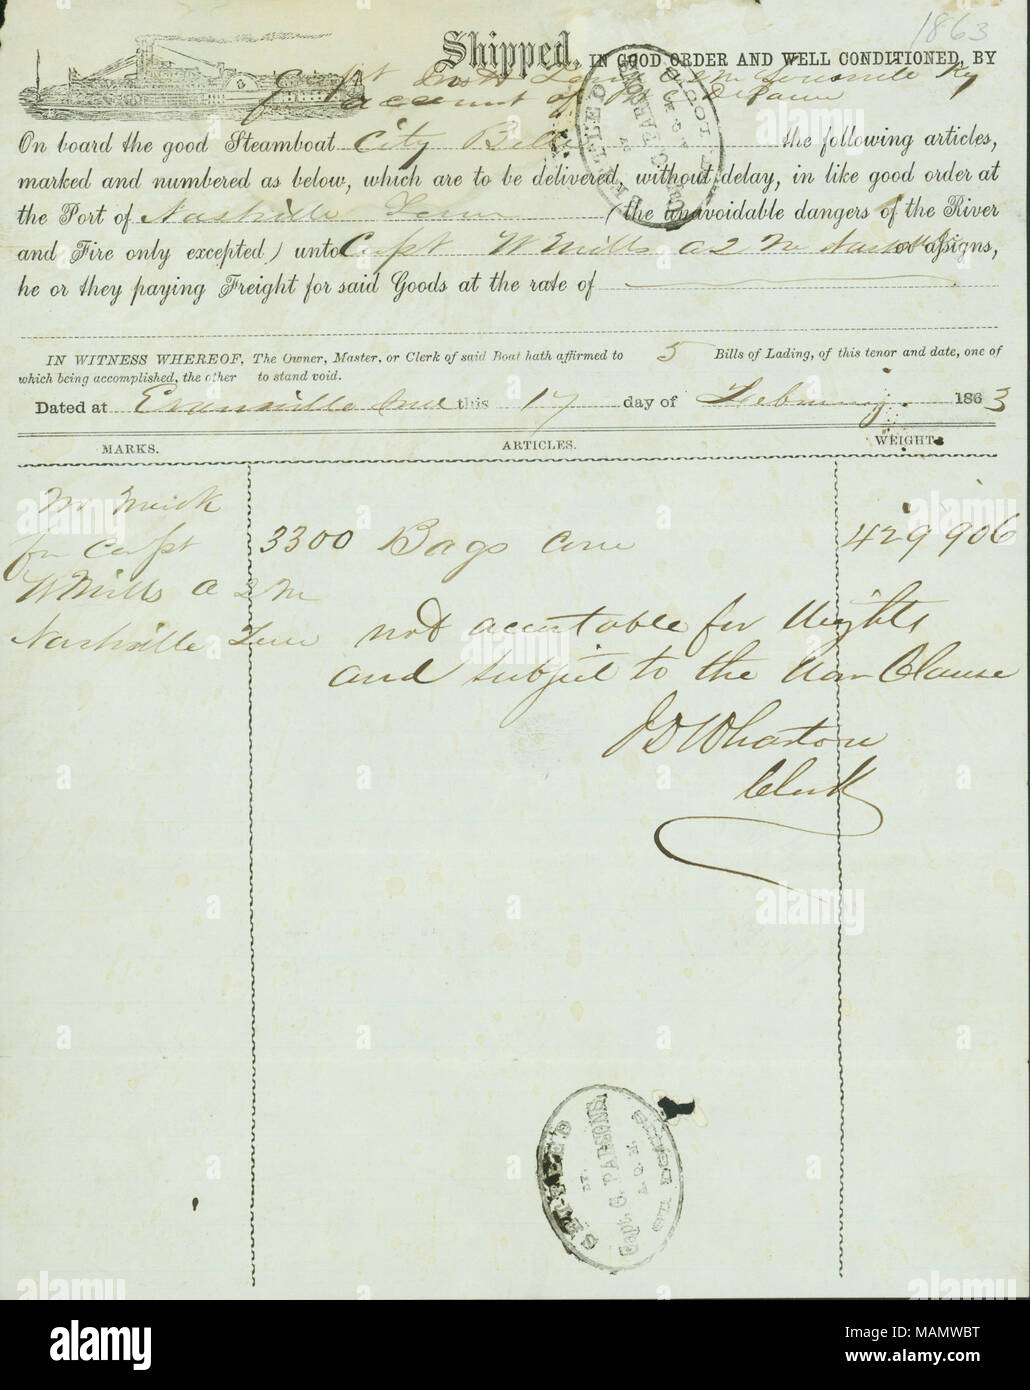 1863
Shipped, IN GOOD ORDER AND WELL CONDITIONED, BY
Capt Louisville Ky
account of
On board the good Steamboat City Belle the following articles,
marked and numbered as below, which are to be delivered, without delay, in like good order at
the Port of Nashville Tenn (the unavoidable dangers of the River
and Fire only excepted) unto Capt W Mills a 2 M Nashville or assigns,
he or they paying Freight for said Goods at the rate of
IN WITNESS WHEREOF, The Owner, Master, or Clerk of said Boat hath affirmed to 5 Bills of Lading, of this tenor and date, one of
which being accomplished, the other to stand void.
Dated at Evansville this 17 day of February 1863
MARKS. ARTICLES. WEIGHT
for Capt 3300 Bags 429906
W Mills a 2 M
Nashville Tenn not accountable for Weights
and subject to the War Clause
J D Wharton
Clerk
SETTLED
BY
Capt. C. PARSONS
A. Q. M.
alamy
Image ID: MAMWBT
www.alamy.com